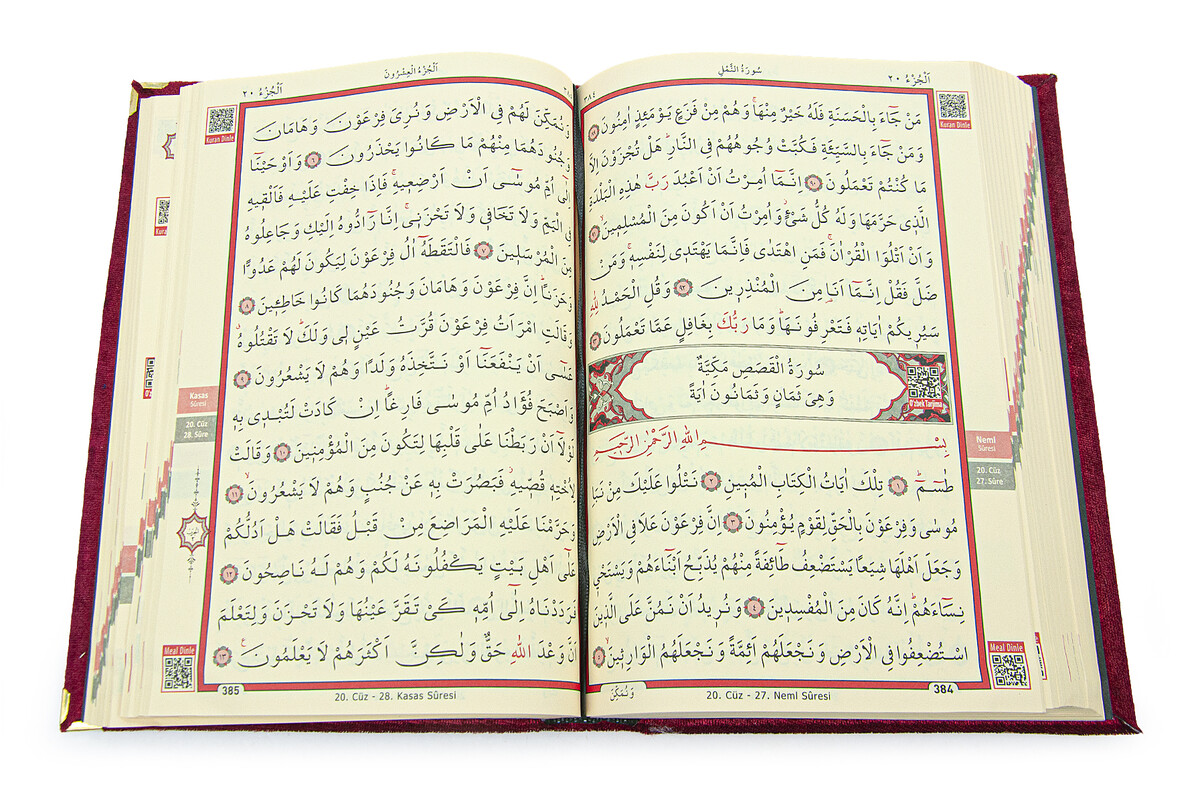 سُورَةُ النَّمْلِ
اَلْجُزْءُ ٢٠
٣٨٤
Kuran Dinle
مَنْ جَٓاءَ بِالْحَسَنَةِ فَلَهُ خَيْرٌ مِنْهَاۚ وَهُمْ مِنْ فَزَعٍ يَوْمَئِذٍ اٰمِنُونَ ﴿٨٩﴾
وَمَنْ جَٓاءَ بِالسَّيِّئَةِ فَكُبَّتْ وُجُوهُهُمْ فِي النَّارِۜ هَلْ تُجْزَوْنَ اِلَّا
مَا كُنْتُمْ تَعْمَلُونَ ﴿٩٠﴾ اِنَّمَٓا اُمِرْتُ اَنْ اَعْبُدَ رَبَّ هٰذِهِ الْبَلْدَةِ
الَّذِي حَرَّمَهَا وَلَهُ كُلُّ شَيْءٍۘ وَاُمِرْتُ اَنْ اَكُونَ مِنَ الْمُسْلِمِينَۙ ﴿٩١﴾
وَاَنْ اَتْلُوَا الْقُرْاٰنَۚ فَمَنِ اهْتَدٰى فَاِنَّمَا يَهْتَدِي لِنَفْسِهِۚ وَمَنْ
ضَلَّ فَقُلْ اِنَّمَٓا اَنَا۬ مِنَ الْمُنْذِرِينَ ﴿٩٢﴾ وَقُلِ الْحَمْدُ لِلّٰهِ
سَيُرِيكُمْ اٰيَاتِهِ فَتَعْرِفُونَهَاۜ وَمَا رَبُّكَ بِغَافِلٍ عَمَّا تَعْمَلُونَ ﴿٩٣﴾
سُورَةُ الْقَصَصِ مَكِّيَّةٌ
وَهِيَ ثَمَانٍ وَثَمَانُونَ اٰيَةً
O'zbek Tarjima
بِسْمِ اللّٰهِ الرَّحْمٰنِ الرَّحِيمِ
طٰسٓمٓ ﴿١﴾ تِلْكَ اٰيَاتُ الْكِتَابِ الْمُبِينِ ﴿٢﴾ نَتْلُوا عَلَيْكَ مِنْ نَبَأِ
مُوسٰى وَفِرْعَوْنَ بِالْحَقِّ لِقَوْمٍ يُؤْمِنُونَ ﴿٣﴾ اِنَّ فِرْعَوْنَ عَلَا فِي الْاَرْضِ
وَجَعَلَ اَهْلَهَا شِيَعًا يَسْتَضْعِفُ طَٓائِفَةً مِنْهُمْ يُذَبِّحُ اَبْنَٓاءَهُمْ وَيَسْتَحْيِ
نِسَٓاءَهُمْۜ اِنَّهُ كَانَ مِنَ الْمُفْسِدِينَ ﴿٤﴾ وَنُرِيدُ اَنْ نَمُنَّ عَلَى الَّذِينَ
اسْتُضْعِفُوا فِي الْاَرْضِ وَنَجْعَلَهُمْ اَئِمَّةً وَنَجْعَلَهُمُ الْوَارِثِينَۙ ﴿٥﴾
Neml
Sûresi
20. Cüz
27. Sûre
Meal Dinle
384
20. Cüz - 27. Neml Sûresi
وَنُمَكِّنَ
اَلْجُزْءُ الْعِشْرُونَ
اَلْجُزْءُ ٢٠
Kuran Dinle
وَنُمَكِّنَ لَهُمْ فِي الْاَرْضِ وَنُرِيَ فِرْعَوْنَ وَهَامَانَ
وَجُنُودَهُمَا مِنْهُمْ مَا كَانُوا يَحْذَرُونَ ﴿٦﴾ وَاَوْحَيْنَٓا
اِلٰٓى اُمِّ مُوسٰٓى اَنْ اَرْضِعِيهِۚ فَاِذَا خِفْتِ عَلَيْهِ فَاَلْقِيهِ
فِي الْيَمِّ وَلَا تَخَافِي وَلَا تَحْزَنِيۚ اِنَّا رَٓادُّوهُ اِلَيْكِ وَجَاعِلُوهُ
مِنَ الْمُرْسَلِينَ ﴿٧﴾ فَالْتَقَطَهُٓ اٰلُ فِرْعَوْنَ لِيَكُونَ لَهُمْ عَدُوًّا
وَحَزَنًاۜ اِنَّ فِرْعَوْنَ وَهَامَانَ وَجُنُودَهُمَا كَانُوا خَاطِـِٔينَ ﴿٨﴾
وَقَالَتِ امْرَاَتُ فِرْعَوْنَ قُرَّتُ عَيْنٍ لِي وَلَكَۜ لَا تَقْتُلُوهُۗ
عَسٰٓى اَنْ يَنْفَعَنَٓا اَوْ نَتَّخِذَهُ وَلَدًا وَهُمْ لَا يَشْعُرُونَ ﴿٩﴾
وَاَصْبَحَ فُؤٰادُ اُمِّ مُوسٰى فَارِغًاۜ اِنْ كَادَتْ لَتُبْدِي بِهِ
لَوْلَٓا اَنْ رَبَطْنَا عَلٰى قَلْبِهَا لِتَكُونَ مِنَ الْمُؤْمِنِينَ ﴿١٠﴾ وَقَالَتْ
لِاُخْتِهِ قُصِّيهِۘ فَبَصُرَتْ بِهِ عَنْ جُنُبٍ وَهُمْ لَا يَشْعُرُونَۙ ﴿١١﴾
وَحَرَّمْنَا عَلَيْهِ الْمَرَاضِعَ مِنْ قَبْلُ فَقَالَتْ هَلْ اَدُلُّكُمْ
عَلٰٓى اَهْلِ بَيْتٍ يَكْفُلُونَهُ لَكُمْ وَهُمْ لَهُ نَاصِحُونَ ﴿١٢﴾
فَرَدَدْنَاهُ اِلٰٓى اُمِّهِ كَيْ تَقَرَّ عَيْنُهَا وَلَا تَحْزَنَ وَلِتَعْلَمَ
اَنَّ وَعْدَ اللّٰهِ حَقٌّ وَلٰكِنَّ اَكْثَرَهُمْ لَا يَعْلَمُونَ۟ ﴿١٣﴾
Kasas
Sûresi
20. Cüz
28. Sûre
Meal Dinle
385
20. Cüz - 28. Kasas Sûresi